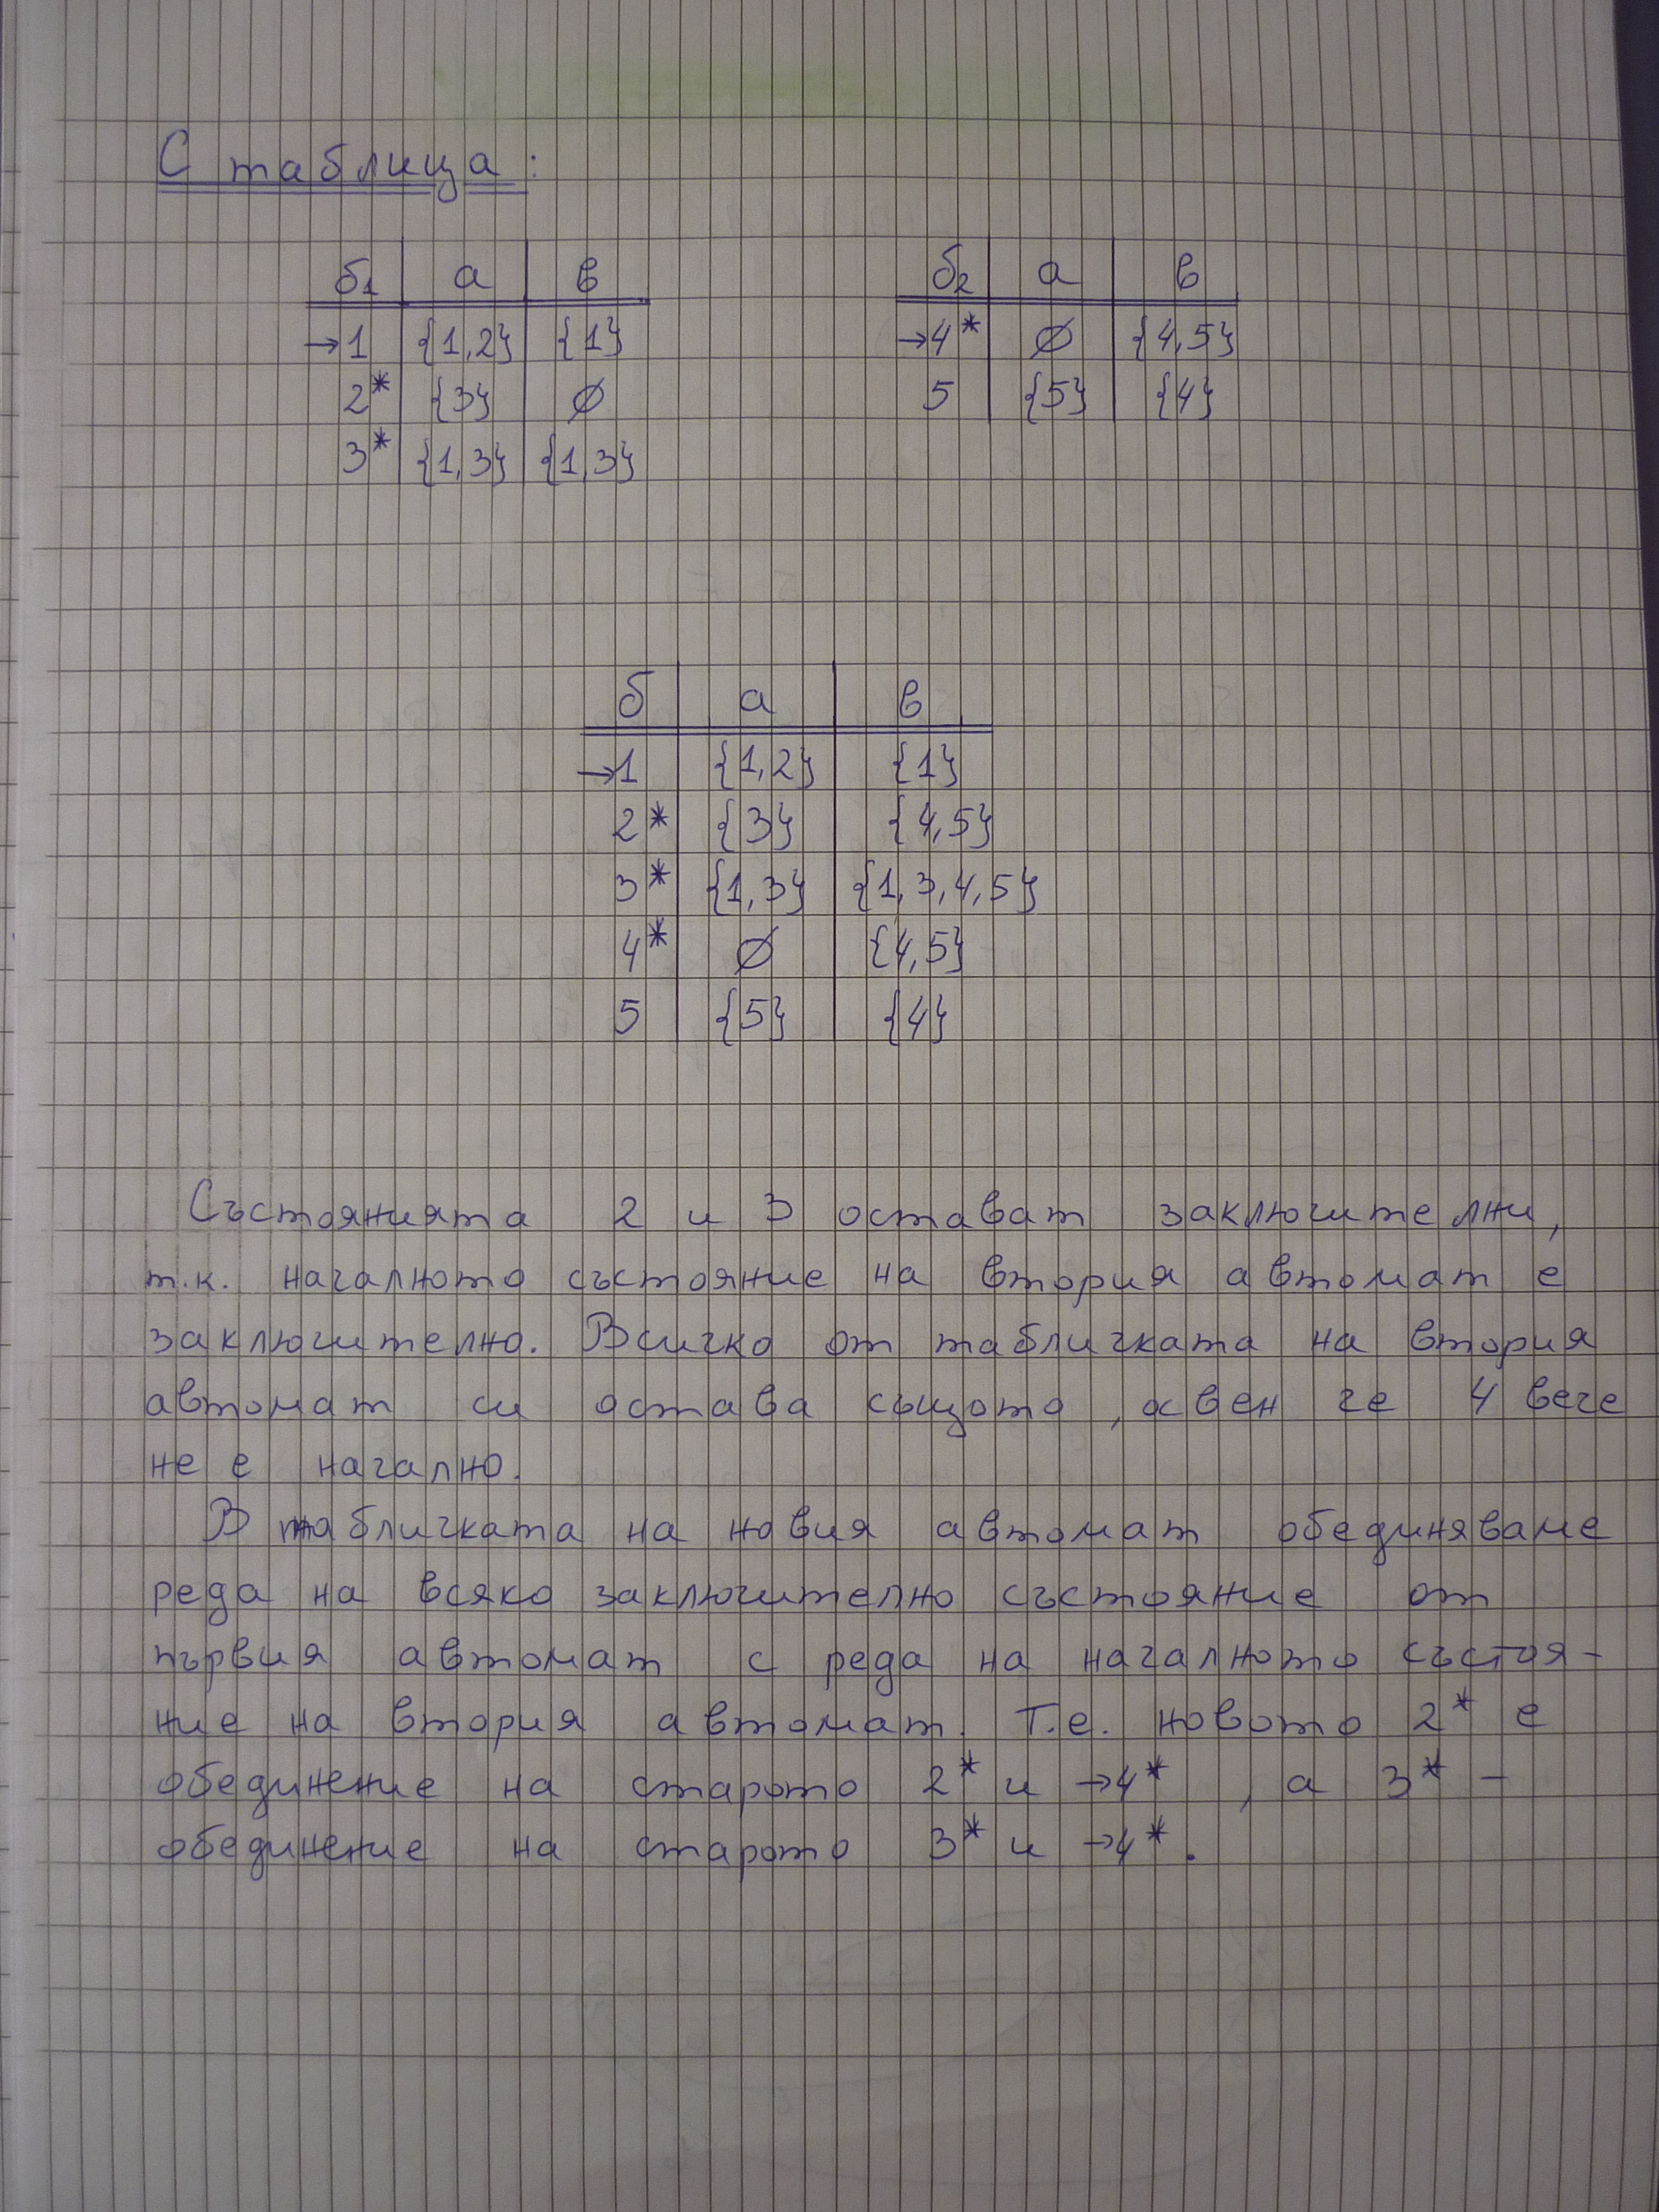 С таблица:
б1 а в
→1 {1,2} {1}
2* {3} ∅
3* {1,3} {1,3}
б2 а в
→4* ∅ {4,5}
5 {5} {4}
б а в
→1 {1,2} {1}
2* {3} {4,5}
3* {1,3} {1,3,4,5}
4* ∅ {4,5}
5 {5} {4}
Състоянията 2 и 3 остават заключителни,
т.к. началното състояние на втория автомат е
заключително. Всичко от табличката на втория
автомат си остава същото, освен че 4 вече
не е начално.
В табличката на новия автомат обединяваме
реда на всяко заключително състояние от
първия автомат с реда на началното състоя-
ние на втория автомат. Т.е. новото 2* е
обединение на старото 2* и →4*, а 3* –
обединение на старото 3* и →4*.